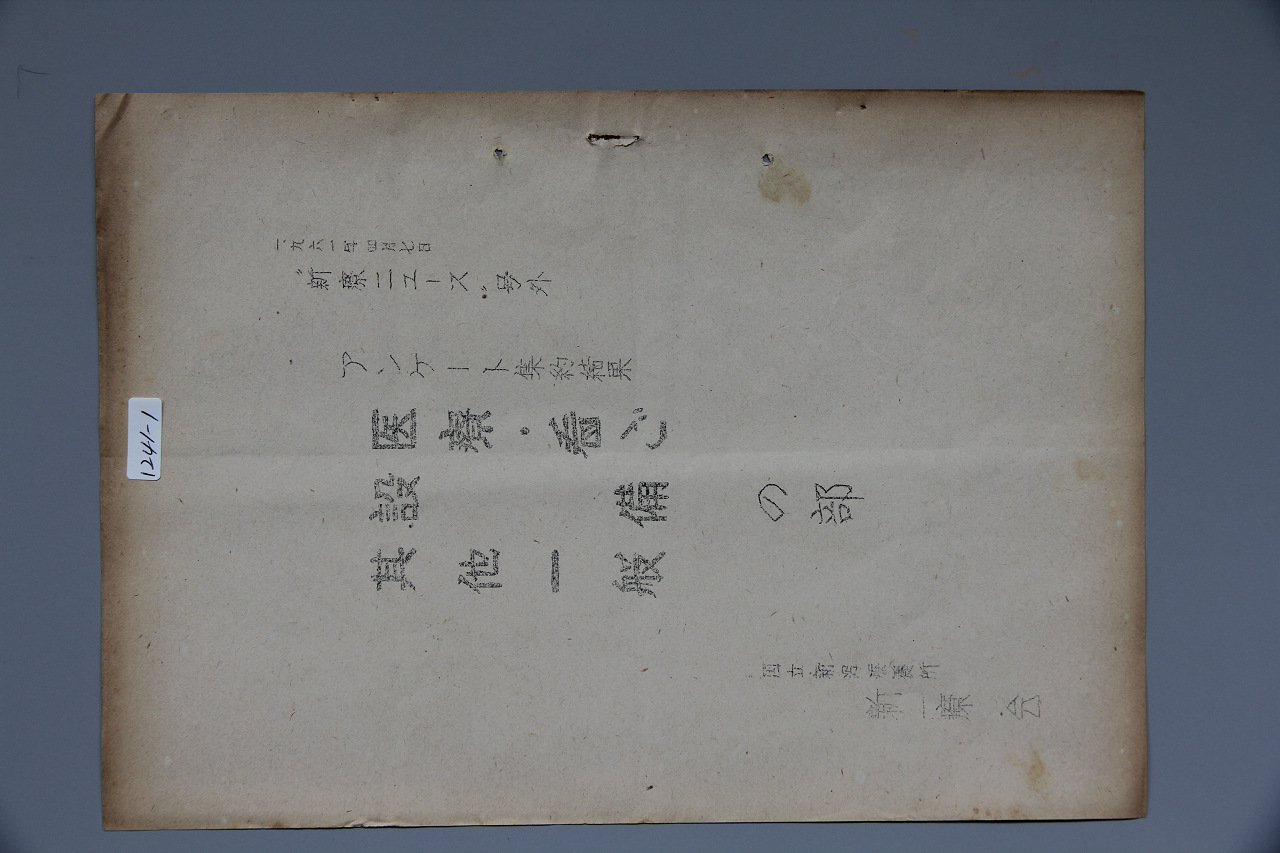 一九六一年四月七日
“新療ニュース”号外
アンケート集約結果
医療・看ご
設備の部
其他一般
国立新潟療養所
1241-1